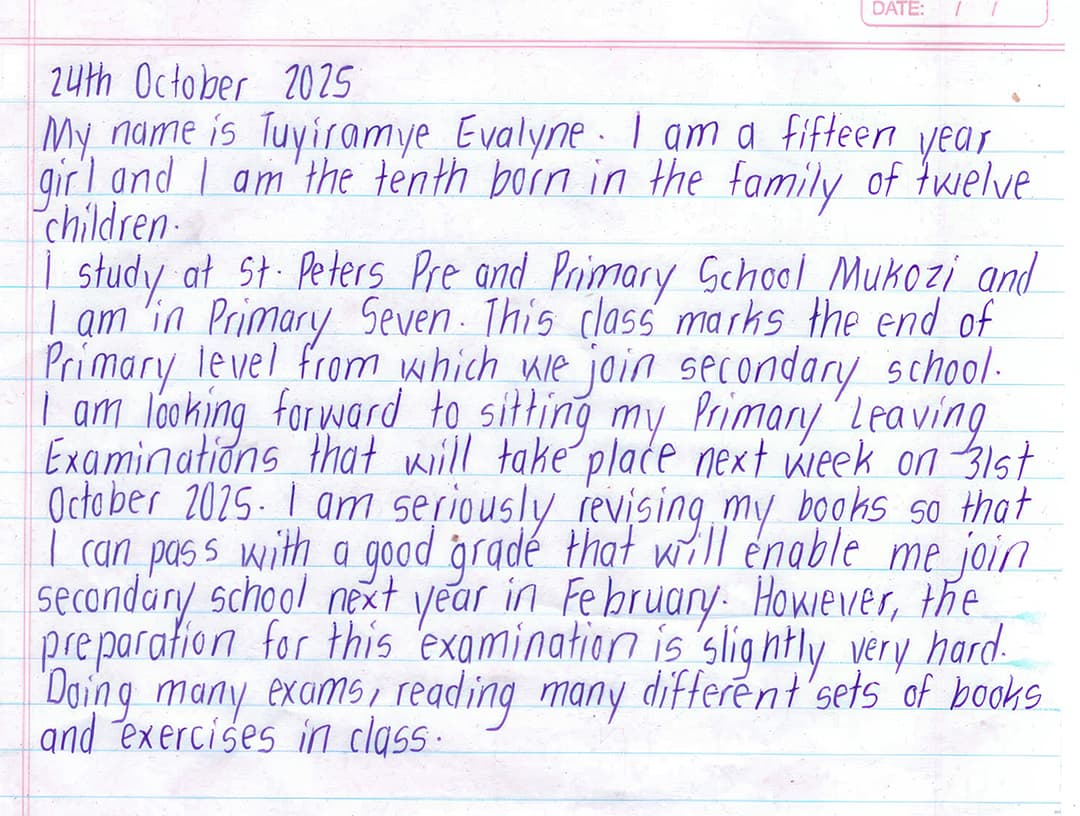 DATE: / /
24th October 2025
My name is Tuyiramye Evalyne. I am a fifteen year
girl and I am the tenth born in the family of twelve
children.
I study at St. Peters Pre and Primary School Mukozi and
I am in Primary Seven. This class marks the end of
Primary level from which we join secondary school.
I am looking forward to sitting my Primary Leaving
Examinations that will take place next week on 31st
October 2025. I am seriously revising my books so that
I can pass with a good grade that will enable me join
secondary school next year in February. However, the
preparation for this examination is slightly very hard.
Doing many exams, reading many different sets of books
and exercises in class.